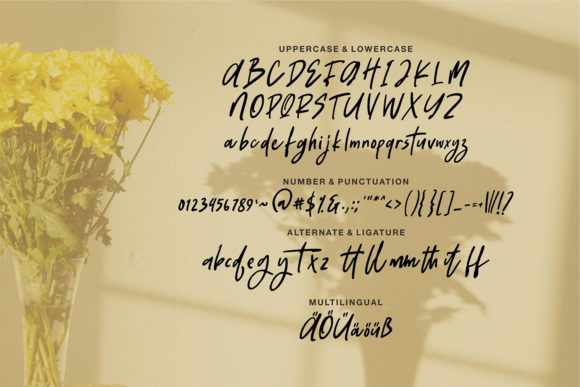 UPPERCASE & LOWERCASE
ABCDEFGHIJKLM
NOPQRSTUVWXYZ
abcdefghijklmnopqrstuvwxyz
NUMBER & PUNCTUATION
0123456789`~@#$%&.,:;'"*^<>(){}[]_-=+\|/!?
ALTERNATE & LIGATURE
abcqegyTxz tt ll mm th it ff
MULTILINGUAL
ÄÖÜäöüß